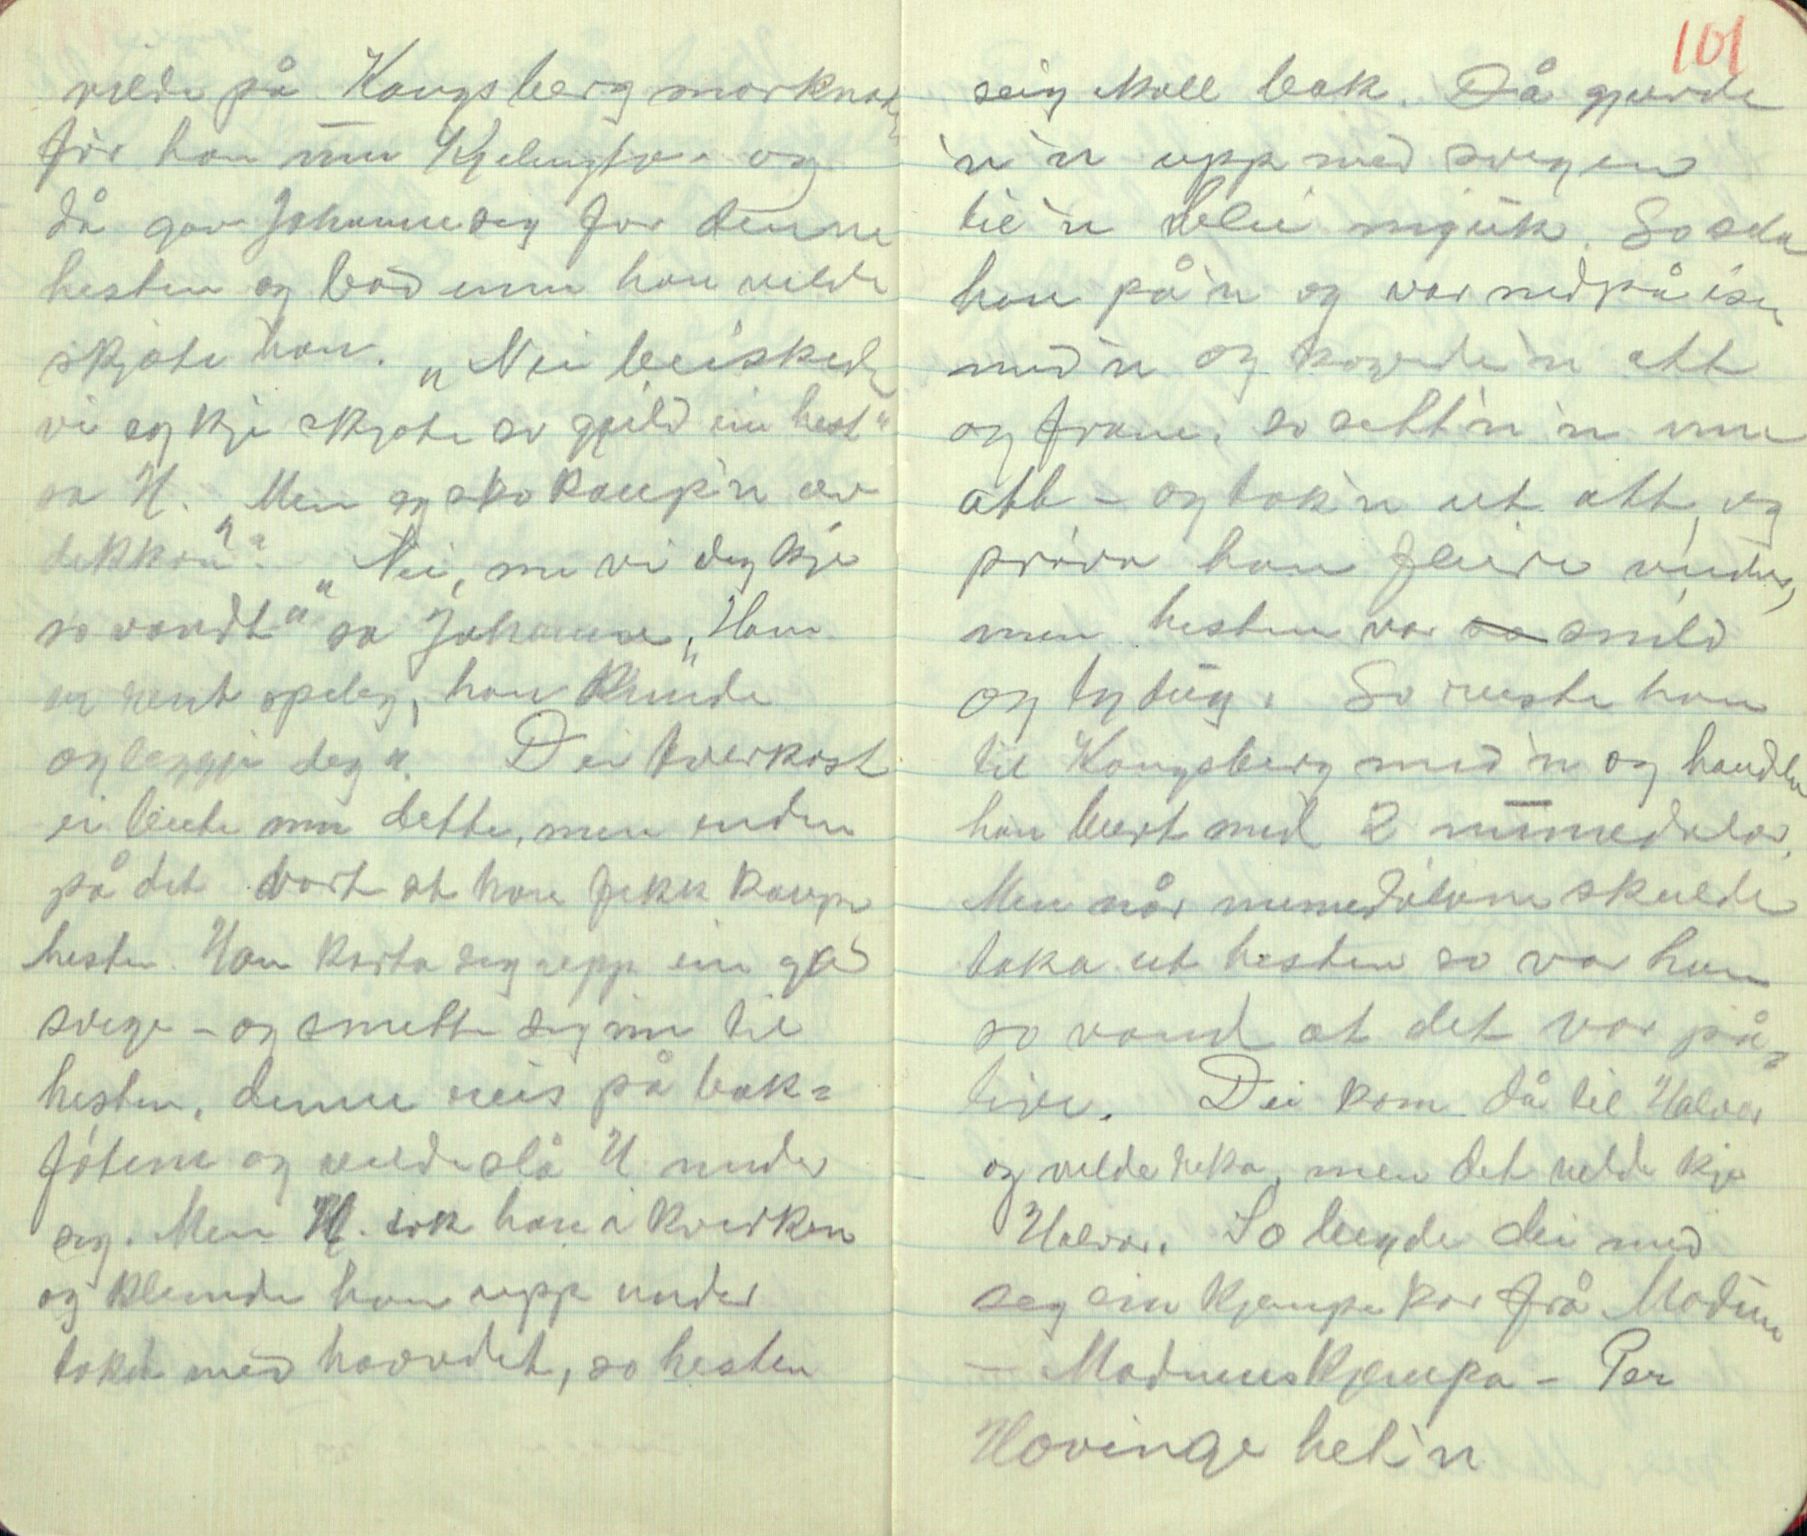 vilde på Kongsbergmarknad,
för han inn Kjelingtv. og
då gav Johanne seg for denne
hesten og bad unn han vilde
skjota han. „Nei beiskede
vi eg kje skjota so gjild ein hest"
sa H. „Men eg sko kaup'n av
dekkon". „Nei, me vi deg kje
so vondt" sa Johanne, „Han
er reint spelug, han kunde
ogleggje deg". Dei tverkast
ei beite um dette, men enden
på det vart at han fekk kaupe
hesten. Han karta seg upp ein god
svege – og smette seg inn til
hesten, denne reis på bak=
fótene og vilde slå H. under
seg. Men H. tok han i kverken
og klemde han upp under
taket med hovudet, so hesten
101
seig skall bak. Då gjorde
'n 'n upp med svegen
til 'n blei mjuk. So sela
han på 'n og var nedpå isen
med 'n og køyrde 'n att
og fram. so sett 'n 'n inn
att – og tok 'n ut att, og
pröva han fleire vender,
men hesten var so snild
og lydug. So reiste han
til Kongsberg med 'n og handla
han burt med 2 numedalar.
Men når numedalane skulde
taka ut hesten so var han
so vond at det var på=
tive. Dei kom då til Halvor
og vilde reka, men det vilde kje
Halvor. So leigde dei med
seg ein kjempekar frå Modum
– Modumskjempa – Per
Hovinge heit 'n